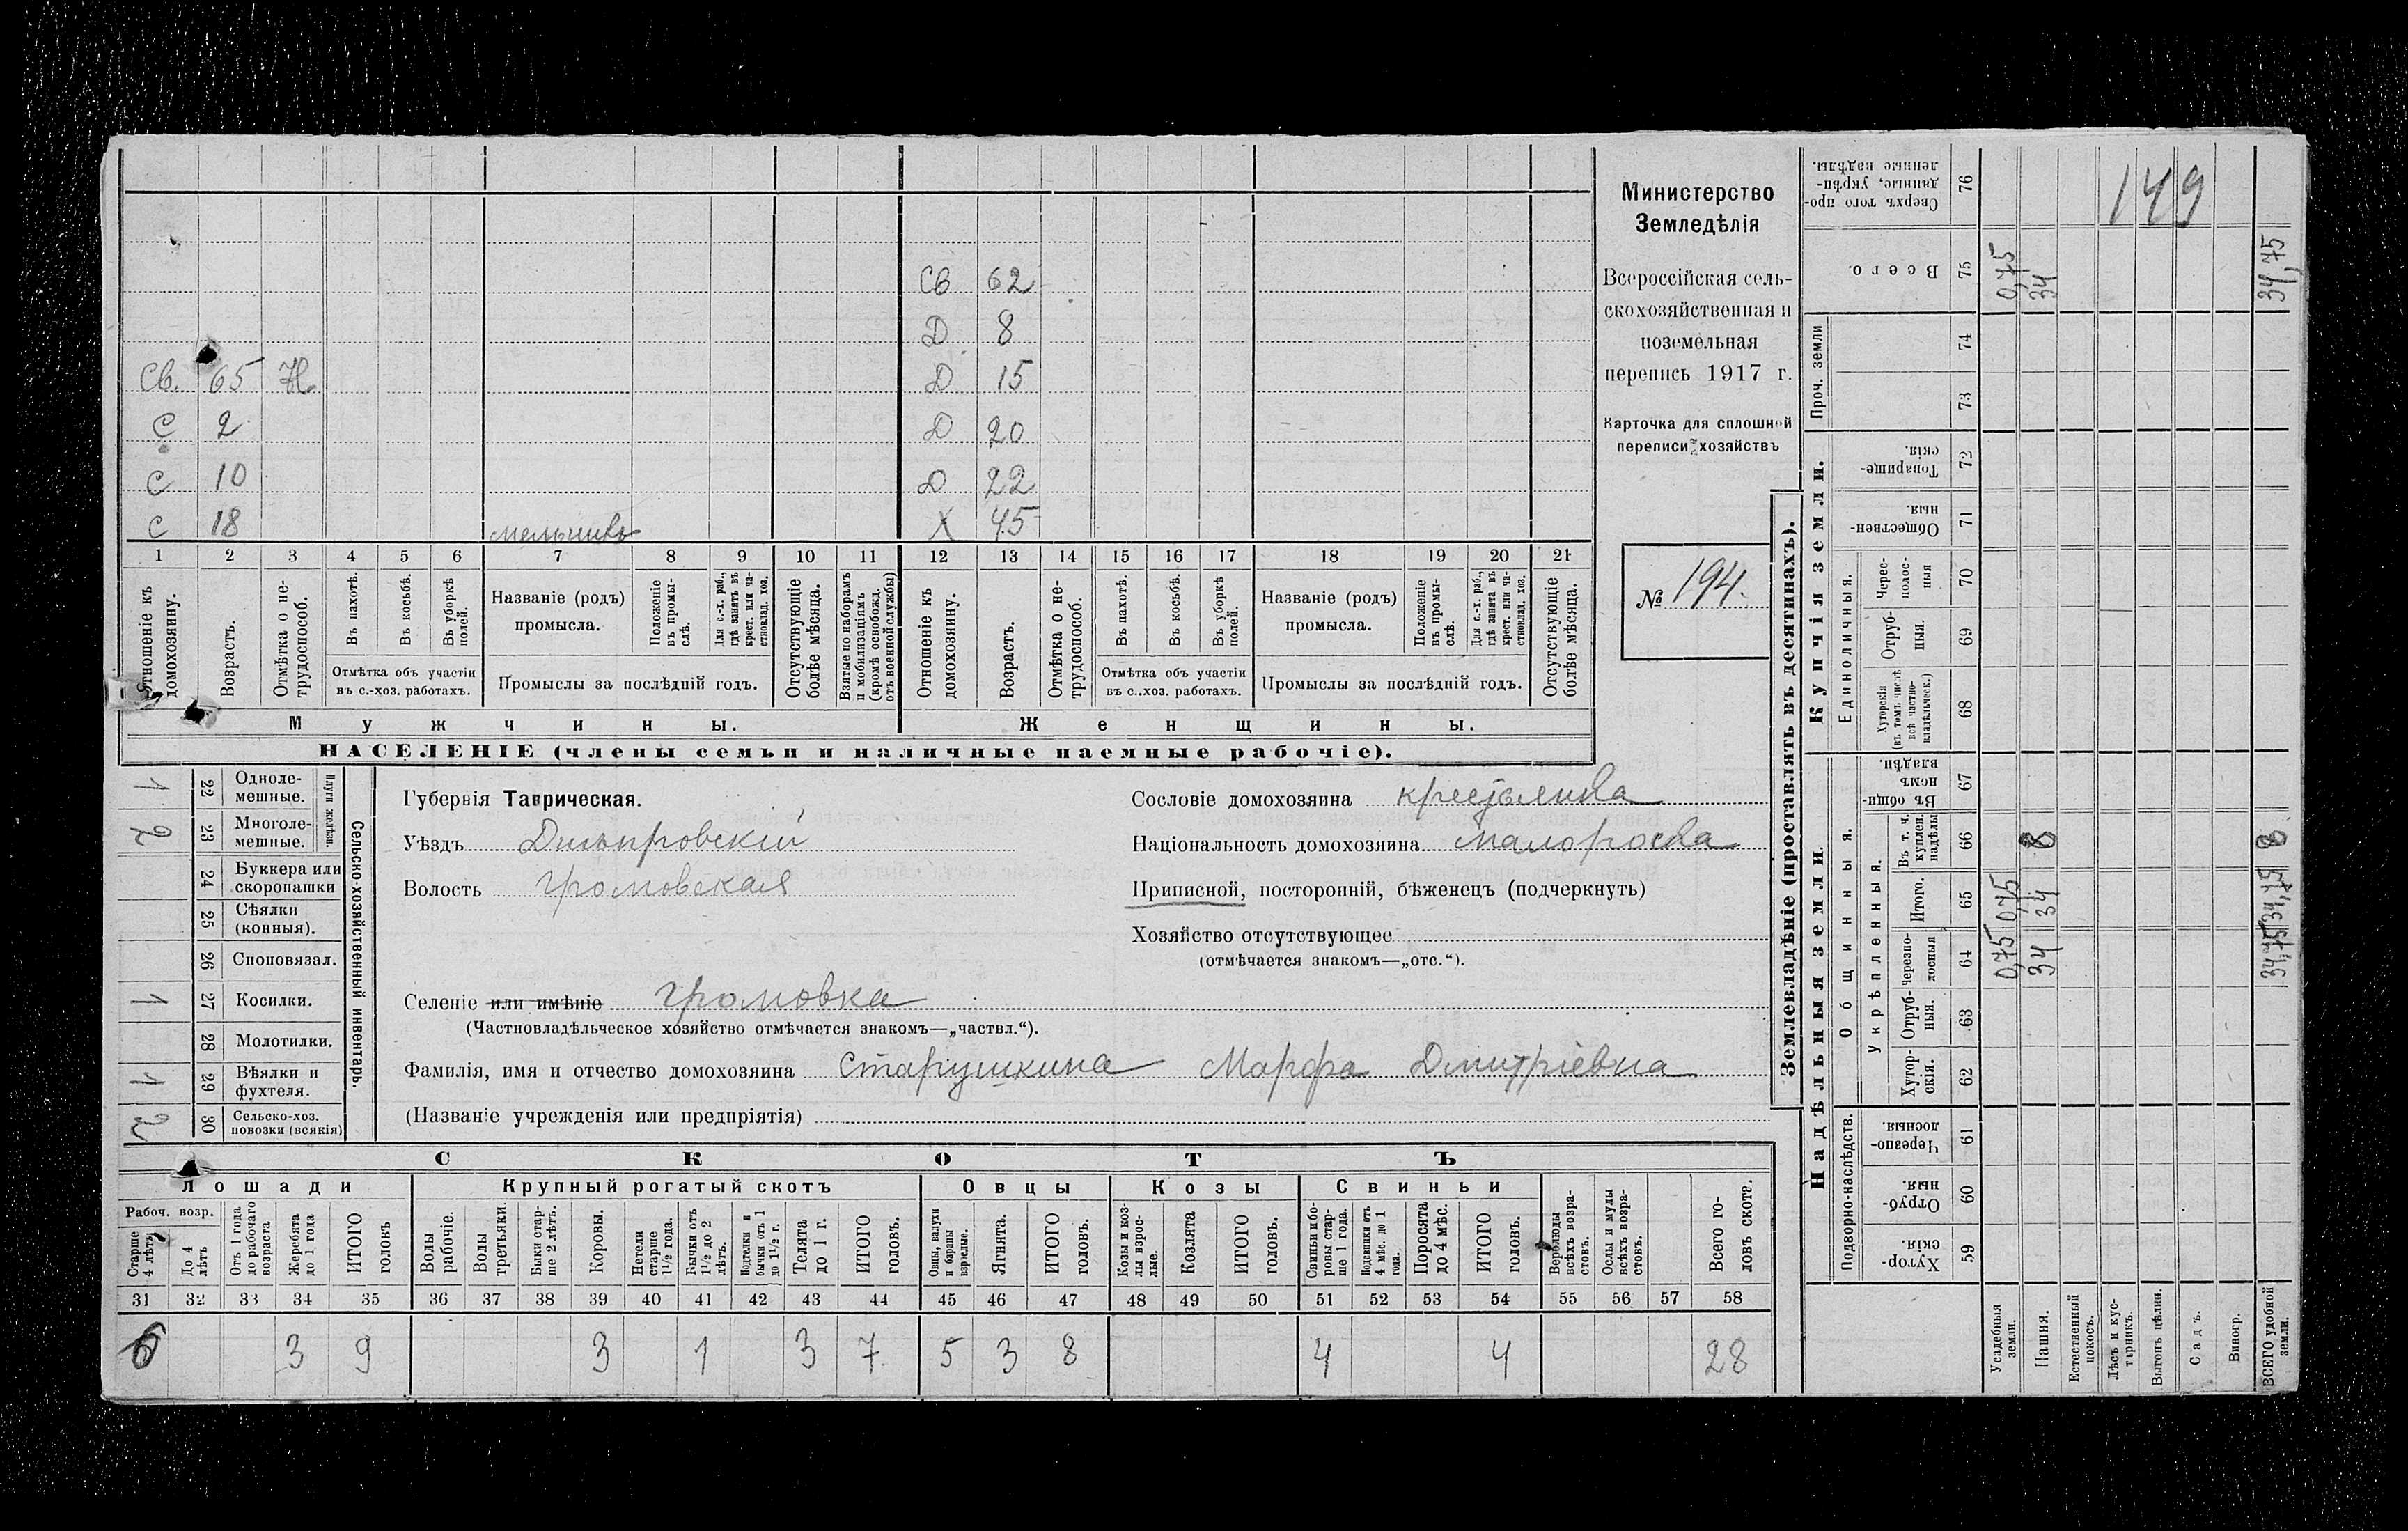 СВ 62
Д 8
Св. 65 Н Д 15
С 2 Д 20
С 10 Д 22
С 18 мельникъ Х 45
1 2 3 4 5 6 7 8 9 10 11 12 13 14 15 16 17 18 19 20 21
Отношеніе къ домохозяину.
Возрастъ.
Отмѣтка о не-трудоспособ.
Въ пахотѣ.
Въ косьбѣ.
Въ уборкѣ полей.
Отмѣтка объ участіи
въ с.-хоз. работахъ.
Названіе (родъ)
промысла.
Положеніе въ промы-слѣ.
Для с.-х. раб., гдѣ занятъ въ крест. или ча-стновлад. хоз.
Промыслы за послѣдній годъ.
Отсутствующіе болѣе мѣсяца.
Взятые по наборамъ и мобилизаціямъ (кромѣ освобожд. отъ военной службы)
Отношеніе къ домохозяину.
Возрастъ.
Отмѣтка о не-трудоспособ.
Въ пахотѣ.
Въ косьбѣ.
Въ уборкѣ полей.
Отмѣтка объ участіи
въ с..хоз. работахъ.
Названіе (родъ)
промысла.
Положеніе въ промы-слѣ.
Для с.-х. раб., гдѣ занята въ крест. или ча-стновлад. хоз.
Промыслы за послѣдній годъ.
Отсутствующіе болѣе мѣсяца.
Мужчины. Женщины.
НАСЕЛЕНІЕ (члены семьи и наличные наемные рабочіе).
Министерство
Земледѣлія
Всероссійская сель-
скохозяйственная и
поземельная
перепись 1917 г.
Карточка для сплошной
переписи хозяйствъ
№ 194.
Сельско-хозяйственный инвентарь.
Плуги желѣзн.
1 22 Одноле-мешные.
2 23 Многоле-мешные.
24 Буккера или скоропашки
25 Сѣялки (конныя).
26 Сноповязал.
1 27 Косилки.
28 Молотилки.
1 29 Вѣялки и фухтеля.
2 30 Сельско-хоз. повозки (всякія)
Губернія Таврическая.
Уѣздъ Днѣпровскій
Волость Громовская
Сословіе домохозяина крестьянка
Національность домохозяина малороска
Приписной, посторонній, бѣженецъ (подчеркнуть)
Хозяйство отсутствующее
(отмѣчается знакомъ—„отс.“).
Селеніе или имѣніе Громовка
(Частновладѣльческое хозяйство отмѣчается знакомъ—„частвл.“).
Фамилія, имя и отчество домохозяина Старушкина Марфа Дмитріевна
(Названіе учрежденія или предпріятія)
СКОТЪ
Лошади Крупный рогатый скотъ Овцы Козы Свиньи
Рабоч. возр.
Старше 4 лѣтъ
До 4 лѣтъ
Отъ 1 года до рабочаго возраста
Жеребята до 1 года
ИТОГО головъ
Волы рабочіе.
Волы третьяки.
Быки стар-ше 2 лѣтъ.
Коровы.
Нетели старше 1½ года.
Бычки отъ 1½ до 2 лѣтъ.
Подтелки и бычки отъ 1 до 1½ г.
Телята до 1 г.
ИТОГО головъ.
Овцы, валухи и бараны взрослые.
Ягнята.
ИТОГО головъ.
Козы и коз-лы взрос-лые.
Козлята
ИТОГО головъ.
Свиньи и бо-ровы стар-ше 1 года.
Подсвинки отъ 4 мѣс. до 1 года.
Поросята до 4 мѣс.
ИТОГО головъ.
Верблюды всѣхъ возра-стовъ.
Ослы и мулы всѣхъ возра-стовъ.
Всего го-ловъ скота.
31 32 33 34 35 36 37 38 39 40 41 42 43 44 45 46 47 48 49 50 51 52 53 54 55 56 57 58
6 3 9 3 1 3 7 5 3 8 4 4 28
Землевладѣніе (проставлять въ десятинахъ).
Надѣльныя земли
Купчія земли.
Проч. земли
Подворно-наслѣдств.
Общинныя.
Укрѣпленныя.
Единоличныя.
Сверхъ того про-данные, укрѣп-ленные надѣлы. 76
Всего. 75 0,75 34 34,75
149
74
73
Товарище-скія. 72
Обществен-ныя. 71
Черес-полос-ныя 70
Отруб-ныя. 69
Хуторскія (въ томъ числѣ всѣ частно-владѣльческ.) 68
Въ общи-номъ владѣн. 67
Въ т. ч. куплен. надѣлы 66 8 8
Итого. 65 0,75 34 34,75
Черезпо-лосныя 64 0,75 34 34,75
Отруб-ныя. 63
Хутор-скія. 62
Черезпо-лосныя. 61
Отруб-ныя. 60
Хутор-скія. 59
Усадебныя земли.
Пашня.
Естественный покосъ.
Лѣсъ и кус-тарникъ.
Выгонъ цѣлин.
Садъ.
Виногр.
ВСЕГО удобной земли.